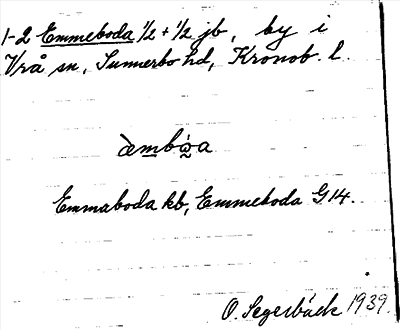 1-2 Emmeboda 1/2 + 1/2 jb, by i
Vrå sn, Sunnerbo hd, Kronob. l.
Emmaboda kb, Emmeboda G 14.
O. Segerbäck 1939.